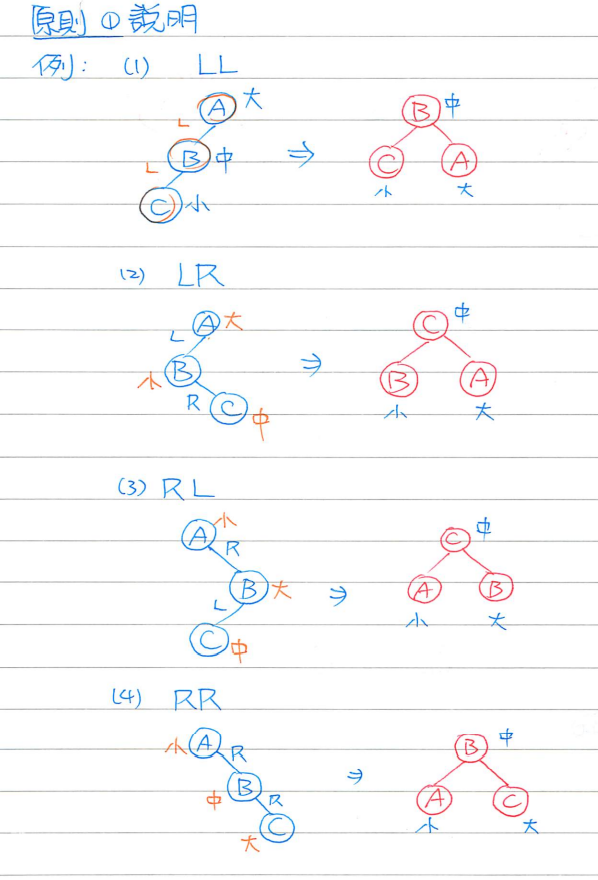 原則①説明
例: (1) LL
A 大
L
B 中
L
C 小
⇒
B 中
C A
小 大
(2) LR
A 大
L
小 B
R C 中
⇒
C 中
B A
小 大
(3) RL
小
A R
B 大
L
C 中
⇒
C 中
A B
小 大
(4) RR
小 A R
中 B R
C
大
⇒
B 中
A C
小 大